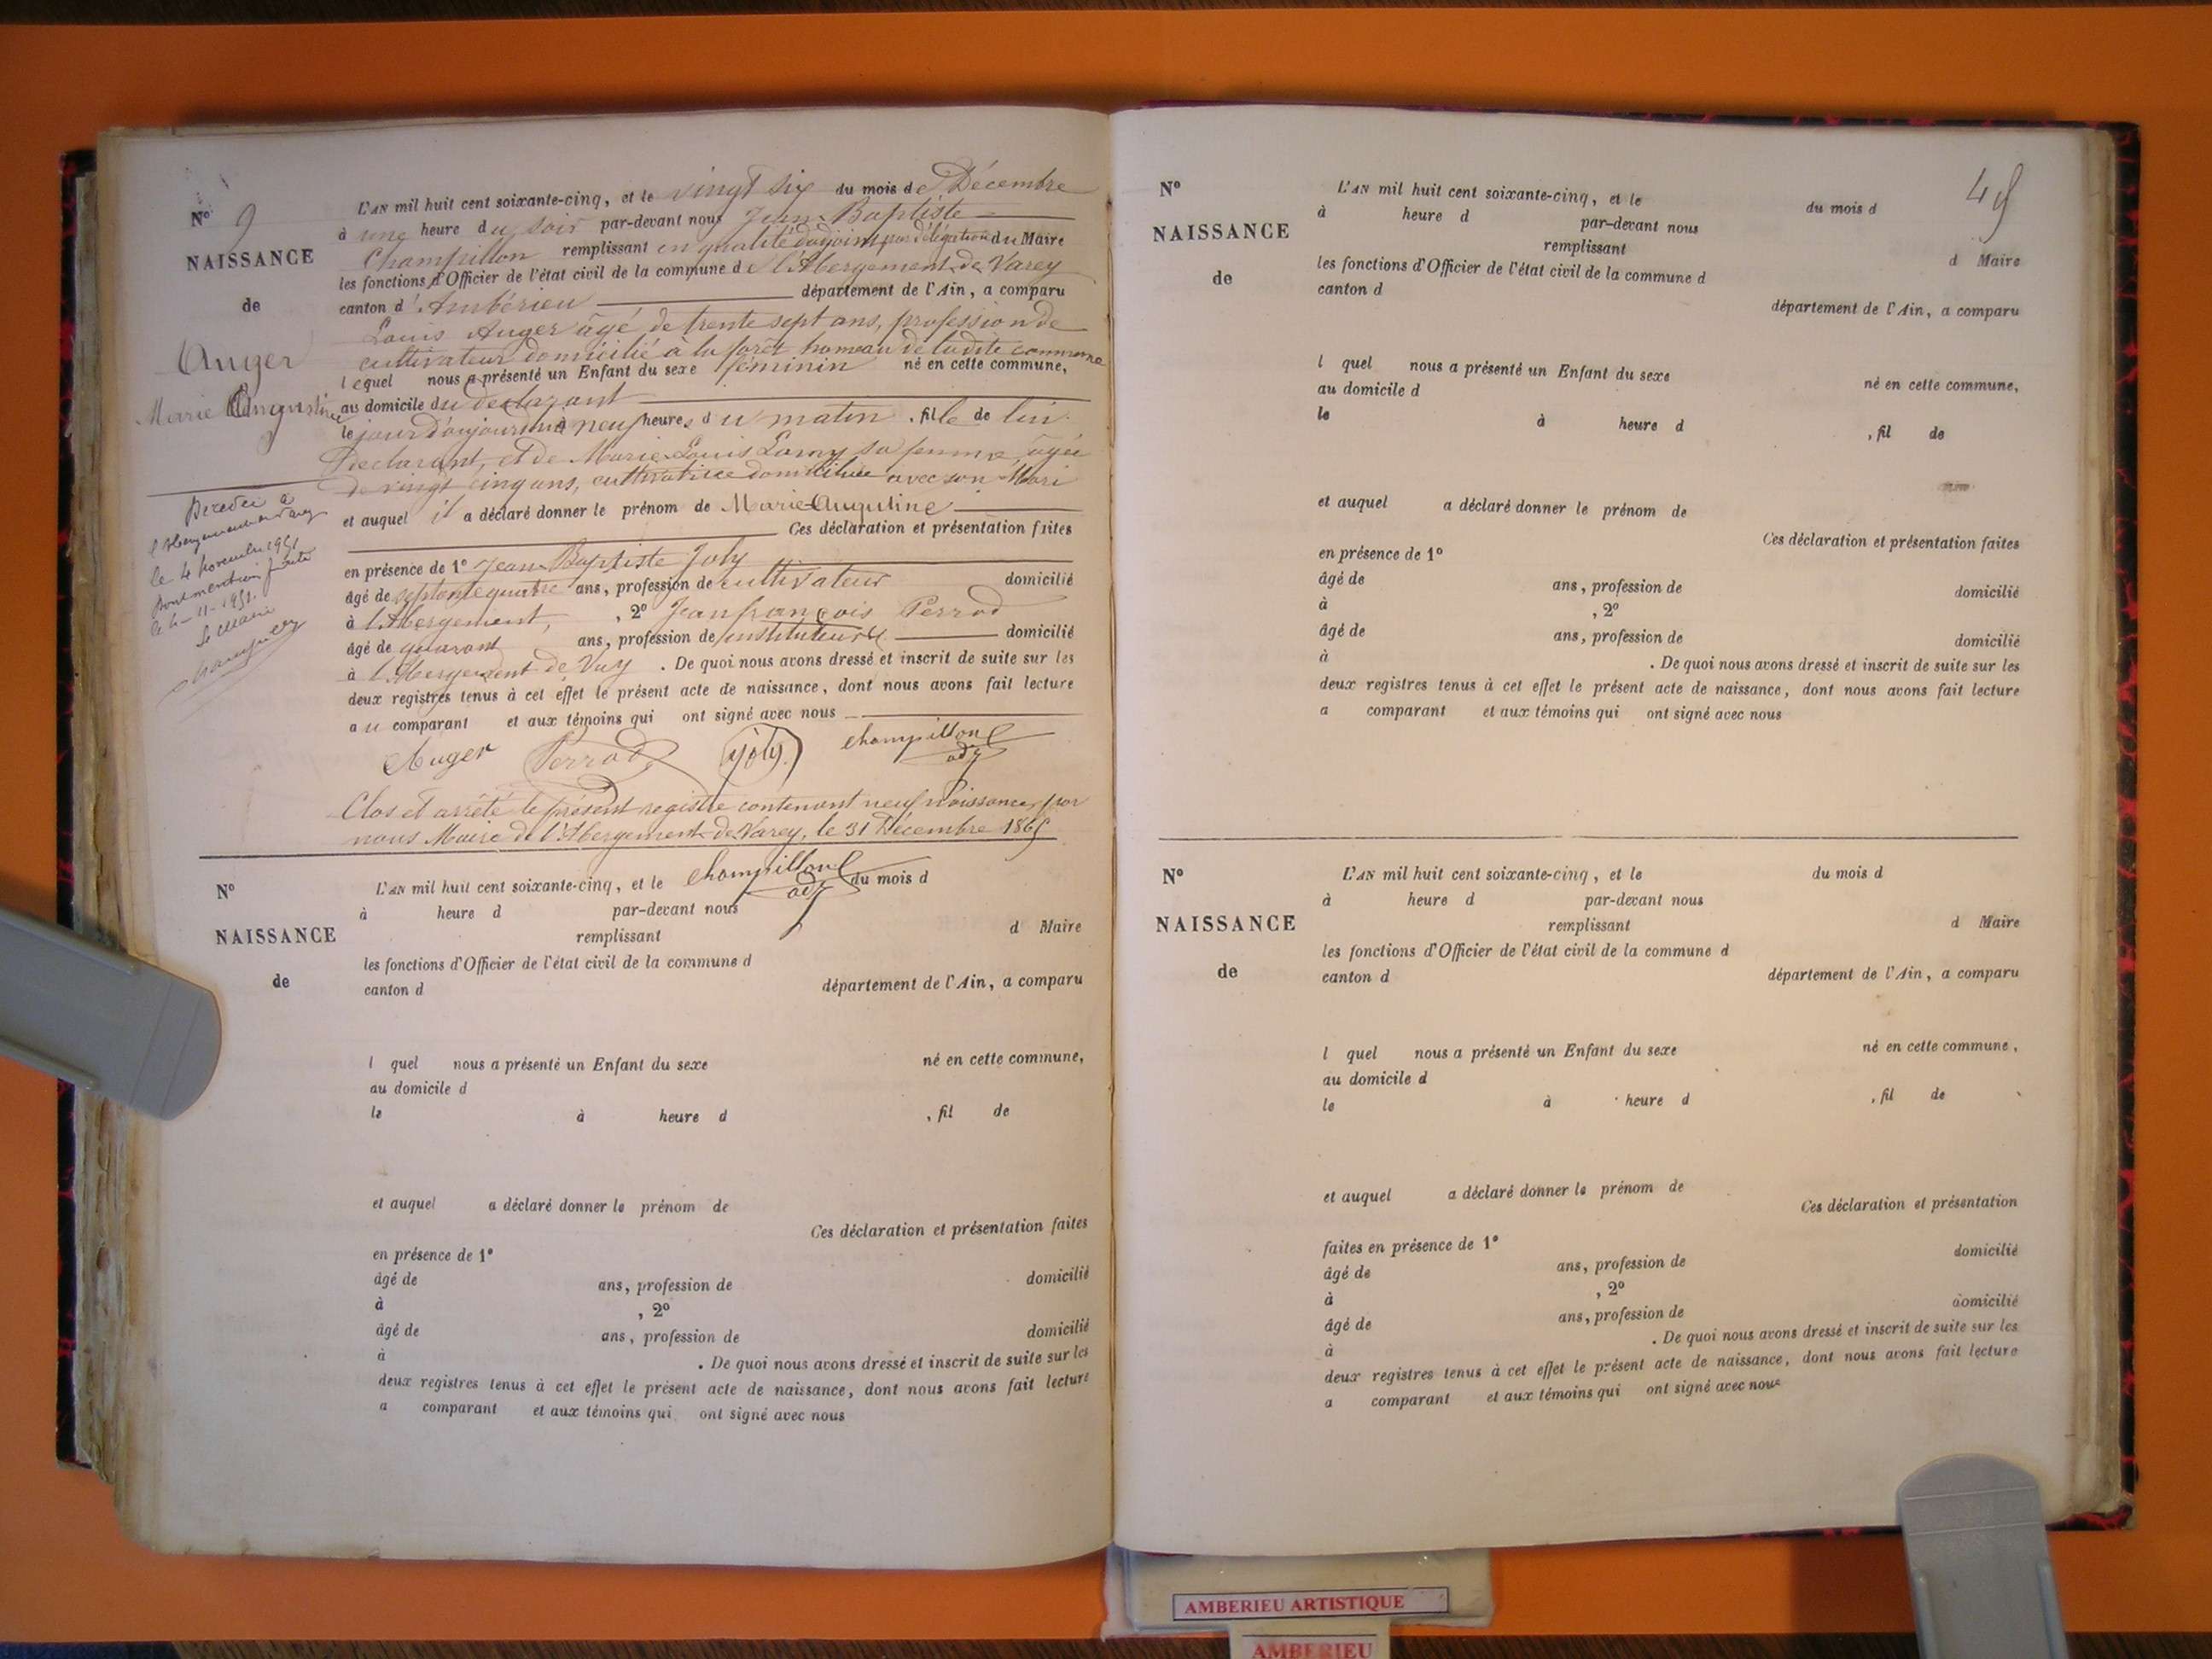 N° 9
NAISSANCE
de
Auger
Marie Augustine
Décédée à
l'Abergement de Varey
le 4 novembre 1951
Dont mention faite
le 6-11-1951.
Le Maire
L'AN mil huit cent soixante-cinq, et le vingt six du mois de Décembre
à une heure du soir par-devant nous Jean-Baptiste
Champillon remplissant en qualité d'adjoint par délégation du Maire
les fonctions d'Officier de l'état civil de la commune de l'Abergement de Varey
canton d'Ambérieu département de l'Ain, a comparu
Louis Auger âgé de trente sept ans, profession de
cultivateur domicilié à la forêt hameau de ladite commune
lequel nous a présenté un Enfant du sexe féminin né en cette commune,
au domicile du déclarant
le jour d'aujourd'hui à neuf heures du matin, fille de lui
déclarant, et de Marie Louis Lamy sa femme âgée
de vingt cinq ans, cultivatrice domiciliée avec son Mari
et auquel il a déclaré donner le prénom de Marie-Auguline
Ces déclaration et présentation faites
en présence de 1° Jean-Baptiste Joly
âgé de septante quatre ans, profession de cultivateur domicilié
à l'Abergement, , 2° Jean françois Perrod
âgé de quarant ans, profession de instituteur domicilié
à l'Abergement de Vary . De quoi nous avons dressé et inscrit de suite sur les
deux registres tenus à cet effet le présent acte de naissance, dont nous avons fait lecture
au comparant et aux témoins qui ont signé avec nous
Auger Perrod Joly Champillon
adj
Clos et arrêté le présent registre contenant neuf Naissances par
nous Maire de l'Abergement-de-Varey, le 31 Décembre 1865
Champillon
adj
N°
NAISSANCE
de
L'AN mil huit cent soixante-cinq, et le du mois d
à heure d par-devant nous
remplissant d Maire
les fonctions d'Officier de l'état civil de la commune d
canton d département de l'Ain, a comparu
l quel nous a présenté un Enfant du sexe né en cette commune,
au domicile d
le à heure d , fil de
et auquel a déclaré donner le prénom de
Ces déclaration et présentation faites
en présence de 1°
âgé de ans, profession de domicilié
à , 2°
âgé de ans, profession de domicilié
à . De quoi nous avons dressé et inscrit de suite sur les
deux registres tenus à cet effet le présent acte de naissance, dont nous avons fait lecture
a comparant et aux témoins qui ont signé avec nous
49
N°
NAISSANCE
de
L'AN mil huit cent soixante-cinq, et le du mois d
à heure d par-devant nous
remplissant d Maire
les fonctions d'Officier de l'état civil de la commune d
canton d département de l'Ain, a comparu
l quel nous a présenté un Enfant du sexe né en cette commune,
au domicile d
le à heure d , fil de
et auquel a déclaré donner le prénom de
Ces déclaration et présentation faites
en présence de 1°
âgé de ans, profession de domicilié
à , 2°
âgé de ans, profession de domicilié
à . De quoi nous avons dressé et inscrit de suite sur les
deux registres tenus à cet effet le présent acte de naissance, dont nous avons fait lecture
a comparant et aux témoins qui ont signé avec nous
N°
NAISSANCE
de
L'AN mil huit cent soixante-cinq, et le du mois d
à heure d par-devant nous
remplissant d Maire
les fonctions d'Officier de l'état civil de la commune d
canton d département de l'Ain, a comparu
l quel nous a présenté un Enfant du sexe né en cette commune,
au domicile d
le à heure d , fil de
et auquel a déclaré donner le prénom de
Ces déclaration et présentation
faites en présence de 1° domicilié
âgé de ans, profession de
à , 2° domicilié
âgé de ans, profession de
à . De quoi nous avons dressé et inscrit de suite sur les
deux registres tenus à cet effet le présent acte de naissance, dont nous avons fait lecture
a comparant et aux témoins qui ont signé avec nous
AMBERIEU ARTISTIQUE
AMBERIEU